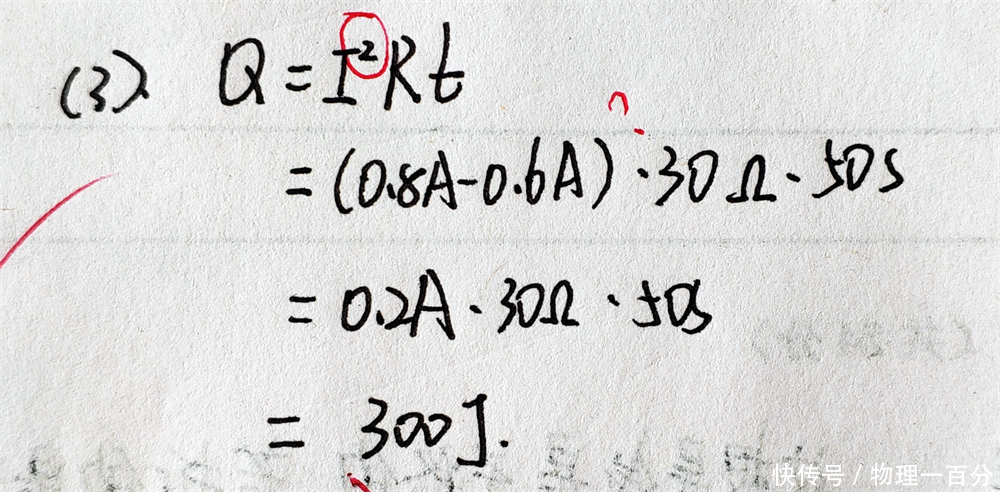 (3). Q = I²Rt
= (0.8A-0.6A)·30Ω·50s
= 0.2A·30Ω·50s
= 300J.
快传号/物理一百分